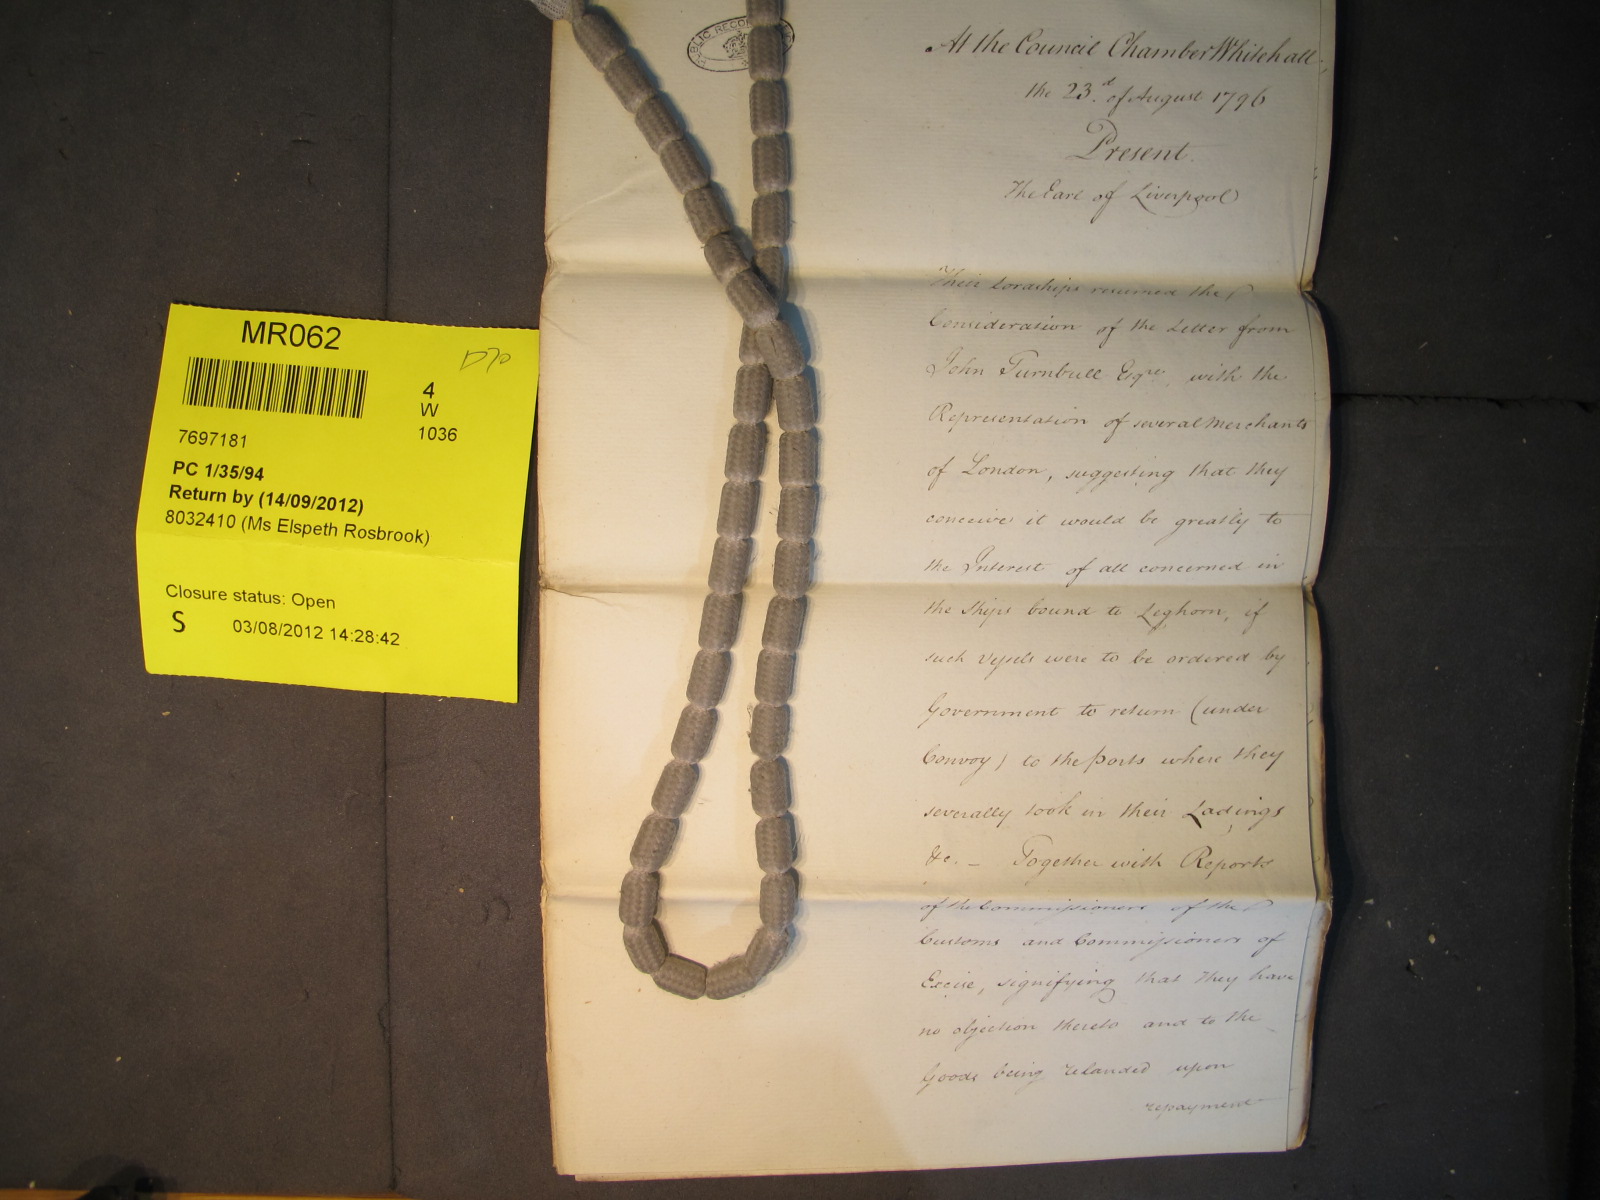 PUBLIC RECORD
MR062
D70
4
W
1036
7697181
PC 1/35/94
Return by (14/09/2012)
8032410 (Ms Elspeth Rosbrook)
Closure status: Open
S 03/08/2012 14:28:42
At the Council Chamber Whitehall
the 23.d of August 1796
Present
The Earl of Liverpool
Their Lordships resumed the
Consideration of the Letter from
John Turnbull Esqre, with the
Representation of several Merchants
of London, suggesting that they
conceive it would be greatly to
the Interest of all concerned in
the Ships bound to Leghorn, if
such Vessels were to be ordered by
Government to return (under
Convoy) to the Ports where they
severally took in their Ladings
&c. — Together with Reports
of the Commissioners of the
Customs and Commissioners of
Excise, signifying that they have
no objection thereto and to the
Goods being relanded upon
repayment